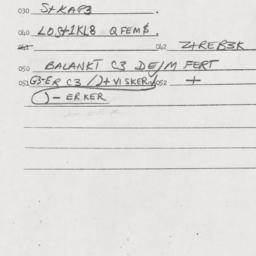 030 S+KAP3 .
040 LOS+1KL8 QFEM$.
042 Z+REB3K
050 BALANKT C3 DE/M FERT
051 G3-ER C3 /)+VISKER/ 052 +
( )-ERKER